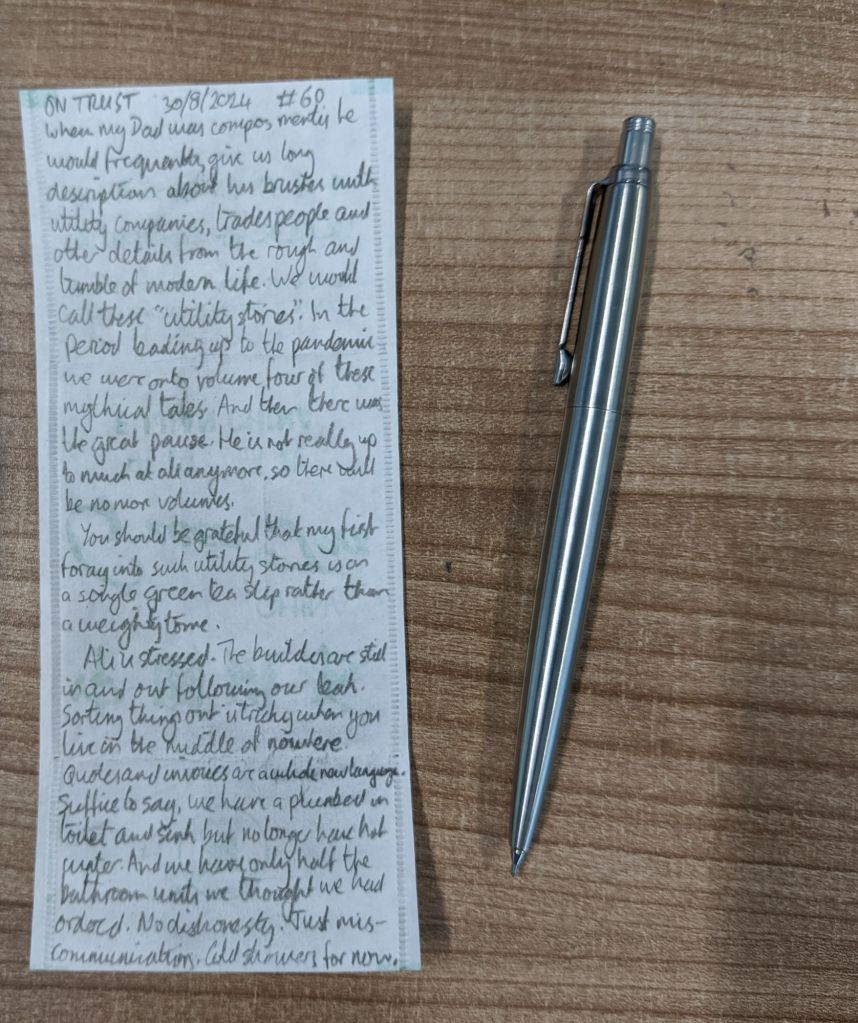 ON TRUST 30/8/2024 #60
When my Dad was compos mentis he
would frequently give us long
descriptions about his brushes with
utility companies, tradespeople and
other details from the rough and
tumble of modern life. We would
call these "utility stories". In the
period leading up to the pandemic
we were onto volume four of these
mythical tales. And then there was
the great pause. He is not really up
to much at all anymore, so there will
be no more volumes.
You should be grateful that my first
foray into such utility stories is on
a single green tea slip rather than
a weighty tome.
Ali is stressed. The builders are still
in and out following our leak.
Sorting things out is tricky when you
live in the middle of nowhere.
Quotes and invoices are a whole new language.
Suffice to say, we have a plumbed in
toilet and sink but no longer have hot
water. And we have only half the
bathroom units we thought we had
ordered. No dishonesty. Just mis-
communication. Cold showers for now.